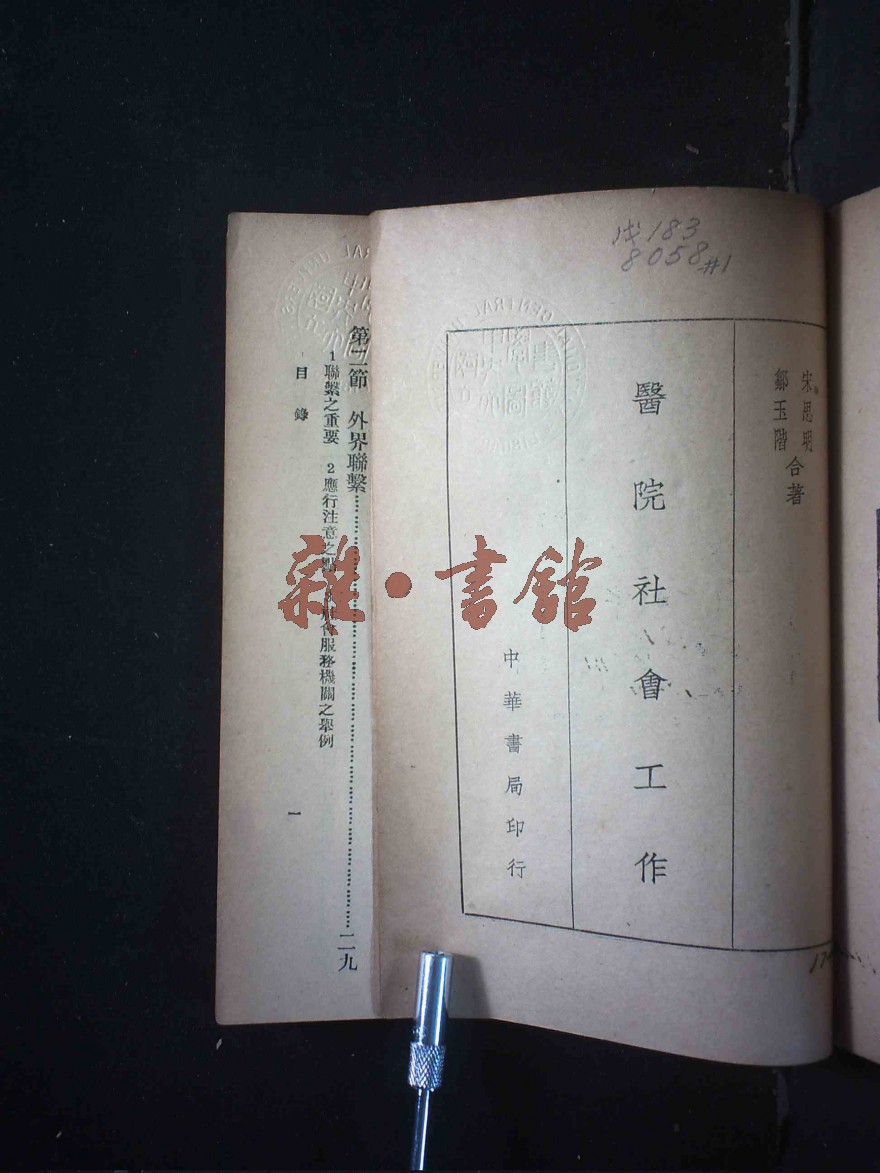 183
8058 #1
宋思明
鄒玉階
合著
醫院社會工作
中華書局印行
第二節 外界聯繫 二九
1 聯繫之重要 2 應行注意之點 會服務機關之舉例
目錄
一
雜·書館